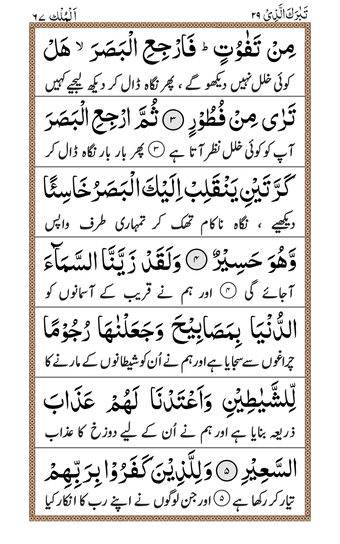 تَبٰرَكَ الَّذِیْ ٢٩ اَلْمُلْك ٦٧
مِنْ تَفٰوُتٍ ؕ فَارْجِعِ الْبَصَرَ ۙ هَلْ
کوئی خلل نہیں دیکھو گے ، پھر نگاہ ڈال کر دیکھ لیجیے کہیں
تَرٰى مِنْ فُطُوْرٍ ﴿٣﴾ ثُمَّ ارْجِعِ الْبَصَرَ
آپ کو کوئی خلل نظر آتا ہے ﴿٣﴾ پھر بار بار نگاہ ڈال کر
كَرَّتَيْنِ يَنْقَلِبْ اِلَيْكَ الْبَصَرُ خَاسِئًا
دیکھیے ، نگاہ ناکام تھک کر تمہاری طرف واپس
وَّهُوَ حَسِيْرٌ ﴿٤﴾ وَلَقَدْ زَيَّنَّا السَّمَآءَ
آجائے گی ﴿٤﴾ اور ہم نے قریب کے آسمانوں کو
الدُّنْيَا بِمَصَابِيْحَ وَجَعَلْنٰهَا رُجُوْمًا
چراغوں سے سجایا ہے اور ہم نے اُن کو شیطانوں کے مارنے کا
لِّلشَّيٰطِيْنِ وَاَعْتَدْنَا لَهُمْ عَذَابَ
ذریعہ بنایا ہے اور ہم نے اُن کے لیے دوزخ کا عذاب
السَّعِيْرِ ﴿٥﴾ وَلِلَّذِيْنَ كَفَرُوْا بِرَبِّهِمْ
تیار کر رکھا ہے ﴿٥﴾ اور جن لوگوں نے اپنے رب کا انکار کیا